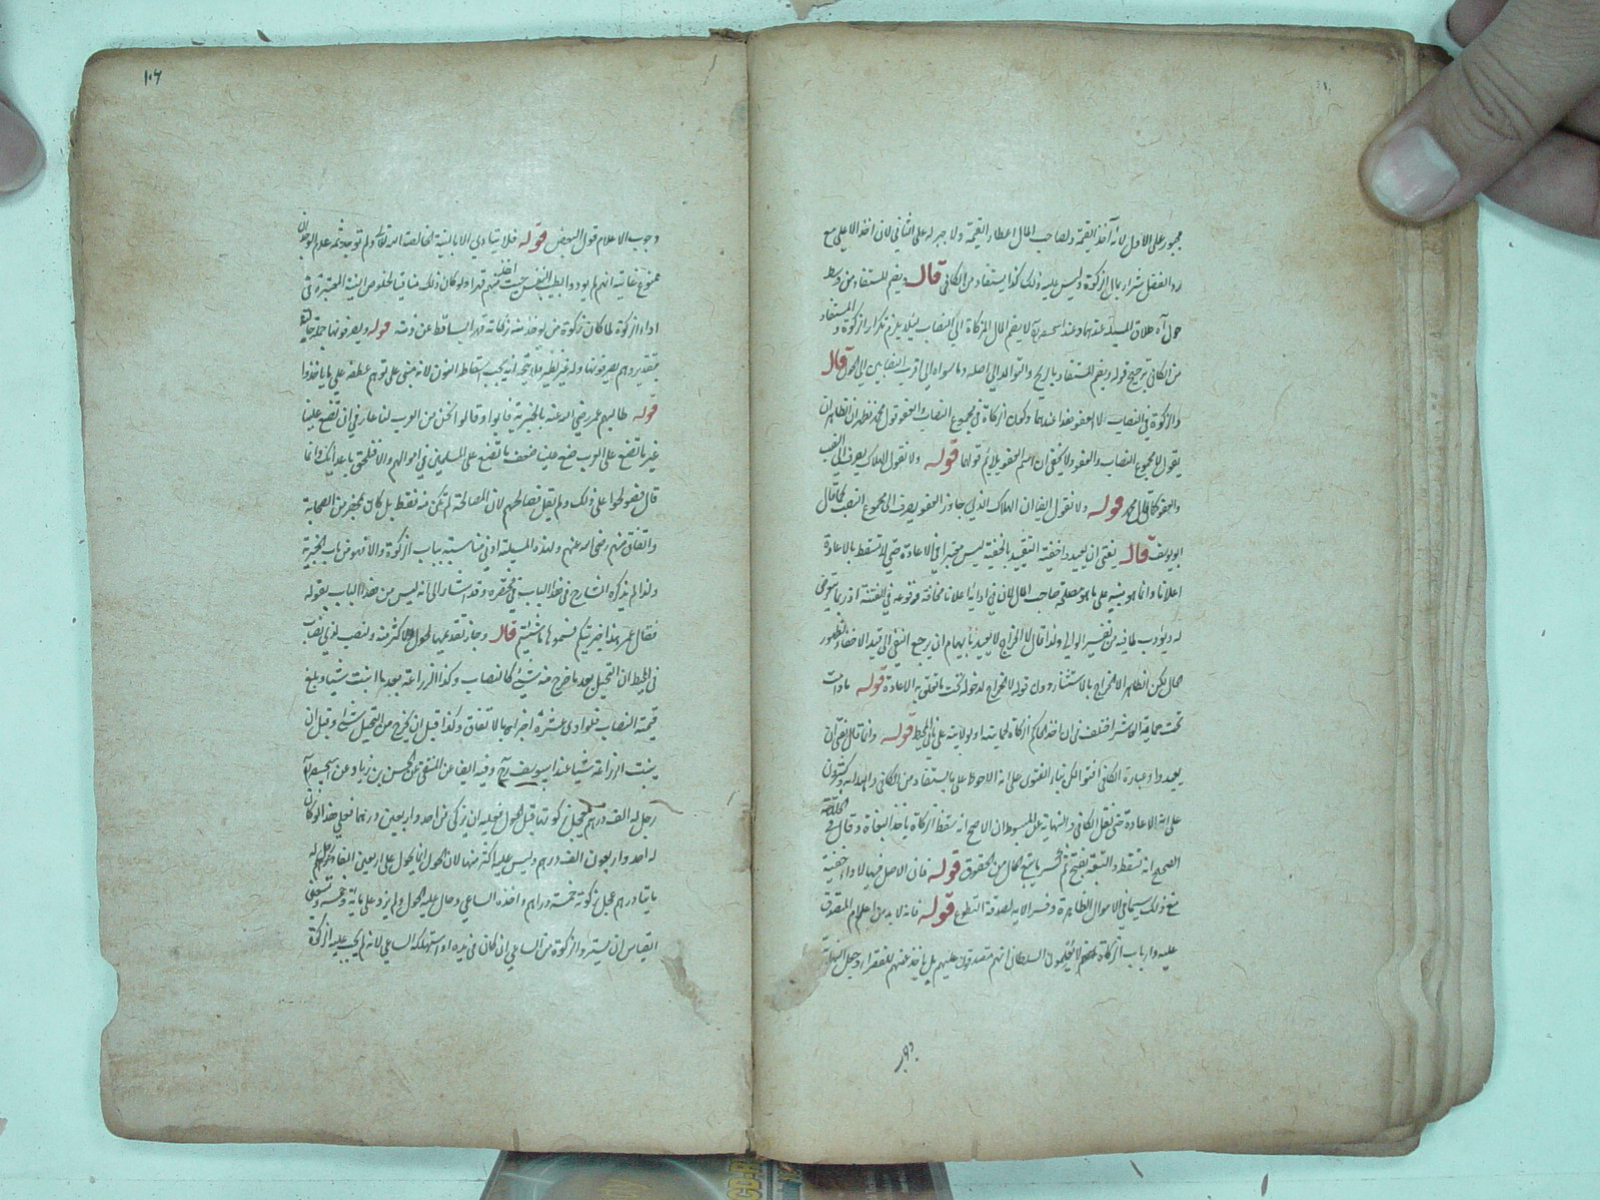 مجبور على الاول لانه أخذ القيمة ولصاحب المال اعطاء القيمة ولا جبر له على الثاني لان اخذ الاعلى مع
رد الفضل شراء بمال الزكوة وليس عليه ذلك كذا يستفاد من الكافي قال ويضم المستفاد من وسط
حول آه خلاف المسئلة عندهما وعند ابيحنيفة لا يضم المال المزكاة الى النصاب لئلا يلزم تكرار الزكوة والمستفاد
من الكافي توضيح قوله ويضم المستفاد بالربح والتوالد الى اصله وما سواه الى اقرب النصابين الى الحول قال
والزكوة في النصاب لا العفو هذا عندهما وتكون الزكاة في مجموع النصاب والعفو قول محمد نظر لان الظاهر ان
يقول لمجموع النصاب والعفو ولا يخفى ان اسم العفو يلايم قولهما قوله ولا نقول الهلاك يصرف الى النصب
والعفو كما قال محمد قوله ولا نقول ايضا ان الهلاك الذي جاوز العفو يصرف الى مجموع النصب كما قال
ابو يوسف قال يفتى ان يعيدوا خفية التقييد بالخفية ليس معتبرا في الاعادة حتى لا تسقط بالاعادة
اعلانا وانما هو مبني على ما هو مصلحة صاحب المال لان في ادائها اعلانا مخافة وقوعه في الفتنة اذ ربما يتوصى
له ويؤدب لما فيه من تغيير الوالي ولذا قال لا الخراج لا يعيد
حال يكن الظاهر الاخراج بالاستثناء دون قوله لا الخراج لدخوله تحت ما تعلق به الاعادة قوله ما دامت
تحت حماية العاشر اختلف في ان اخذ الحاكم الزكاة لحمايته او لولايته على ما في المحيط قوله وانما قال يفتى ان
يعيدوا وعبارة الكافي افتوا لكن بناء الفتوى على انه الاحوط على ما يستفاد من الكافي والهداية
على انه الاعادة حتى نقل الكافي والنهاية عن المبسوط ان الاصح انه سقط الزكاة باخذ البغاة وقال في الخلاصة
الصحيح انه تسقط والتبعة بفتح ثم كسر ما يتبع المال من الحقوق قوله فان الاصل فيها الاداء خفية
مع ذلك سيما في الاموال الظاهرة وفسر الآية لصدقة التطوع قوله فانه لا بد من اعلام المتصدق
عليه وارباب الزكاة لا يعلمون السلطان انهم متصدقون عليهم بل يأخذ عنهم للفقراء وجعل
وجوب الاعلام قول البعض قوله فلا يتادى الا بالنية الخالصة لله تعالى ولم توجد ثمه عدم الوجدان
ممنوع غاية انهم لم يؤدوا بطيب النفس حيث اخذ منهم قهرا ولو كان ذلك منافيا لخلوص النية المعتبرة في
اداء الزكوة لما كان زكوة من يوخذ منه زكاته قهرا ساقط عن ذمته قوله ويصرفونها جملة حالية
بتقدير وهم يصرفونها وله غير نظير فلا يتجه انه يجب اسقاط النون لانه مبنى على توهم عطفه على ما ياخذوا
قوله طالبهم عمر رضي الله عنه بالجزية فابوا وقالوا نحن من العرب لنا عار في ان تضع علينا
غير ما تضع على العرب ضع علينا ضعف ما تضع على المسلمين في اموالهم والا فنلحق باعدائك وانما
قال فصولحوا على ذلك ولم يقل فصالحهم لان المصالحة لم تكن منه فقط بل كان بمحضر من الصحابة
واتفاق منهم رضي الله عنهم ولهذه المسئلة ادنى مناسبة بباب الزكوة والا فهو من باب الجزية
ولذا لم يذكره الشارح في هذا الباب في مختصره وقد اشار الى انه ليس من هذا الباب بقوله
فقال عمر هذا جزيتكم فسموها ما شئتم قال وجاز تقديمها لحول ولاكثر منه ولنصب لذي نصاب
في المحيط ان التعجيل بعد ما خرج منه شيئ كالنصاب وكذا الزراعة بعد ما نبت شيئا وبلغ
قيمته النصاب فلو ادى عشره اجزأه بالاتفاق وكذا قبل ان يخرج من النخيل شيئا وقبل ان
ينبت الزراعة شيئا عند ابي يوسف رح وفيه ايضا عن المنتقى عن الحسن بن زياد عن ابيحنيفة
رجل له الف درهم عجل زكوتها قبل الحول فعليه ان يزكي من احد واربعين درهما فعلى هذا لو كان
له احد واربعون الف درهم وليس عليه اكثر منها لان الحول انما يحول على اربعين الفا رجل له
مايتا درهم عجل زكوته خمسة دراهم واخذه الساعي وحال عليه الحول ولم يزد على مائة وخمسة وتسعين
القياس ان يسترد الزكوة من الساعي ان كان في يده او استهلكه الساعي لانه لم يجب عليه الزكوة
١٠٦